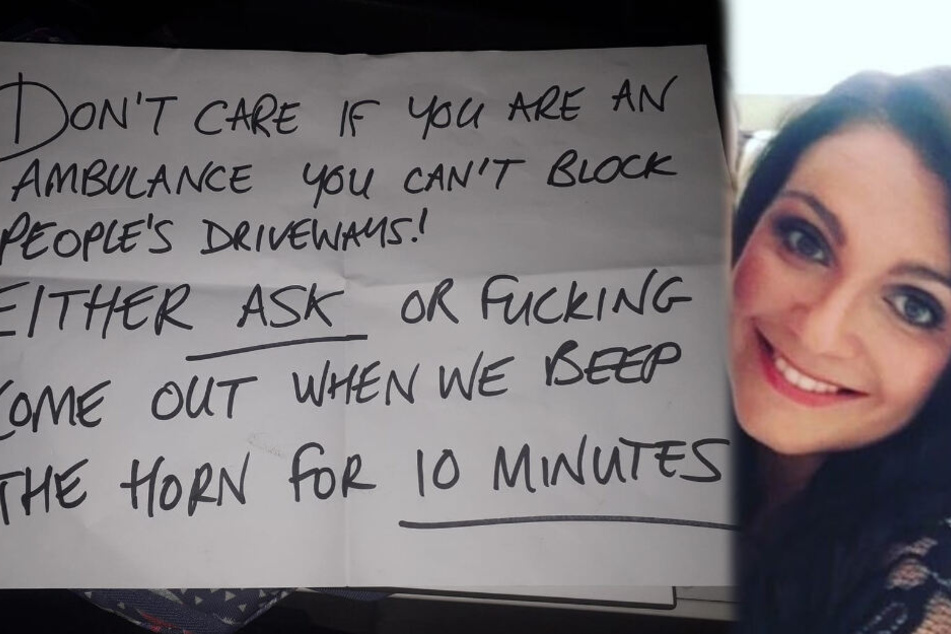 DON'T CARE IF YOU ARE AN
AMBULANCE YOU CAN'T BLOCK
PEOPLE'S DRIVEWAYS!
EITHER ASK OR FUCKING
COME OUT WHEN WE BEEP
THE HORN FOR 10 MINUTES